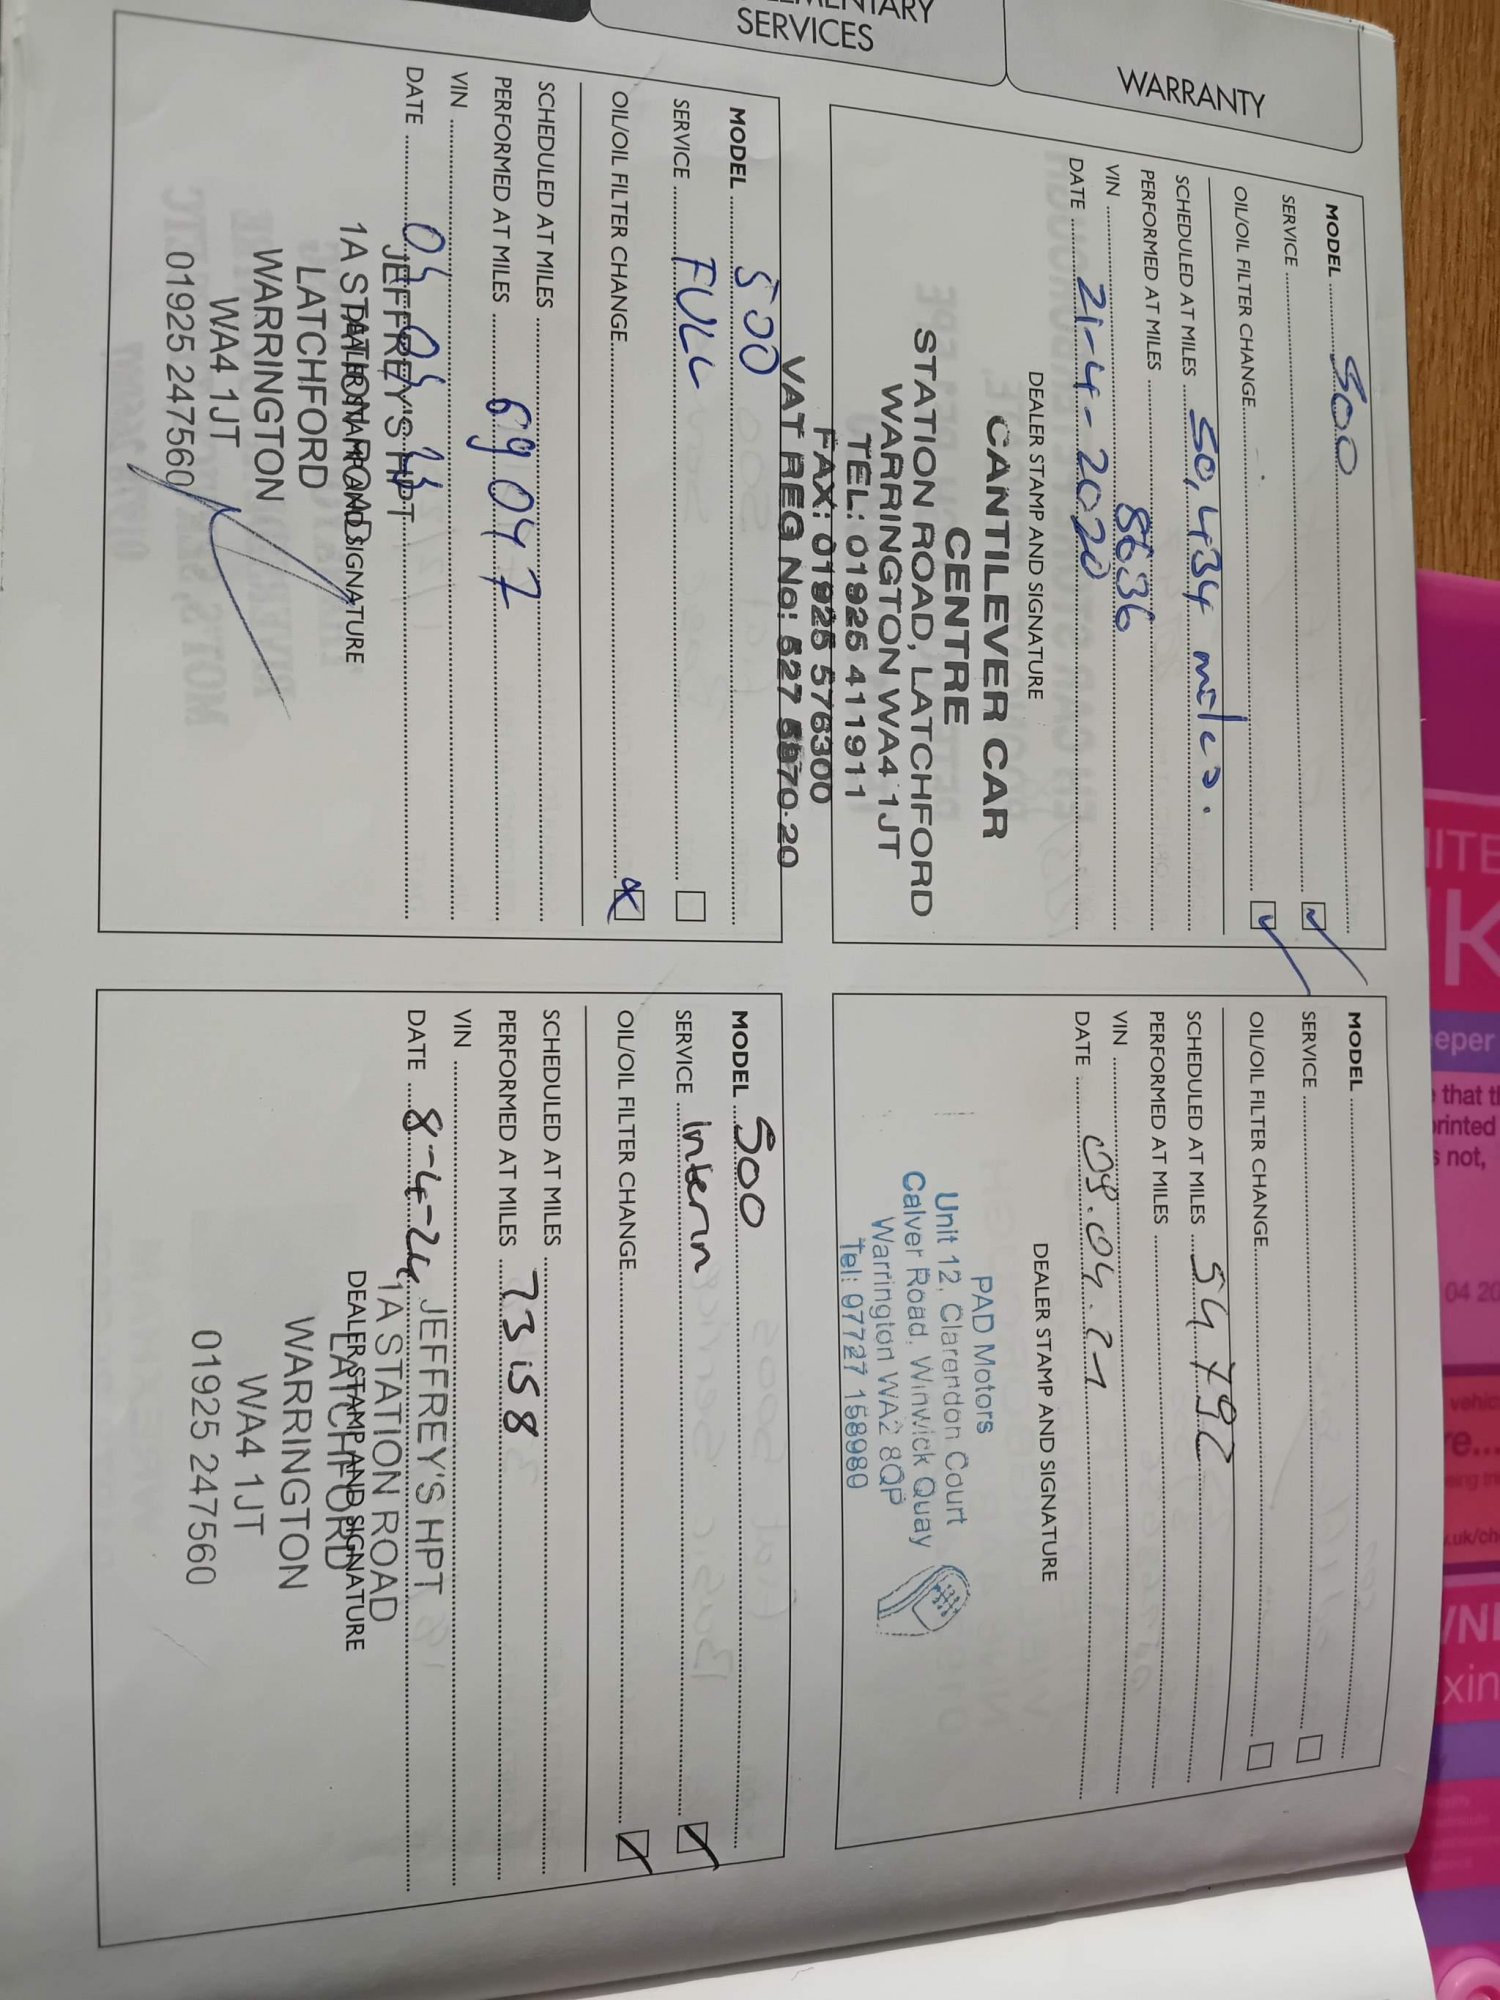 SERVICES
WARRANTY
MODEL 500
SERVICE
OIL/OIL FILTER CHANGE
SCHEDULED AT MILES 50,434 miles.
PERFORMED AT MILES
VIN 8636
DATE 21-4-2020
DEALER STAMP AND SIGNATURE
CANTILEVER CAR
CENTRE
STATION ROAD, LATCHFORD
WARRINGTON WA4 1JT
TEL: 01925 411911
FAX: 01925 576300
VAT REG No: 527 5970 20
MODEL
SERVICE
OIL/OIL FILTER CHANGE
SCHEDULED AT MILES 54792
PERFORMED AT MILES
VIN
DATE 09.04.21
DEALER STAMP AND SIGNATURE
PAD Motors
Unit 12, Clarendon Court
Calver Road, Winwick Quay
Warrington WA2 8QP
Tel: 97727 158989
MODEL 500
SERVICE FULL
OIL/OIL FILTER CHANGE
SCHEDULED AT MILES
PERFORMED AT MILES 69047
VIN
DATE
JEFFREY'S HPT
1A STATION ROAD
DEALER STAMP AND SIGNATURE
LATCHFORD
WARRINGTON
WA4 1JT
01925 247560
MODEL 500
SERVICE Interin
OIL/OIL FILTER CHANGE
SCHEDULED AT MILES
PERFORMED AT MILES 73158
VIN
DATE 8-4-24
JEFFREY'S HPT
1A STATION ROAD
DEALER STAMP AND SIGNATURE
LATCHFORD
WARRINGTON
WA4 1JT
01925 247560
eper
that
rinted
not,
04 20